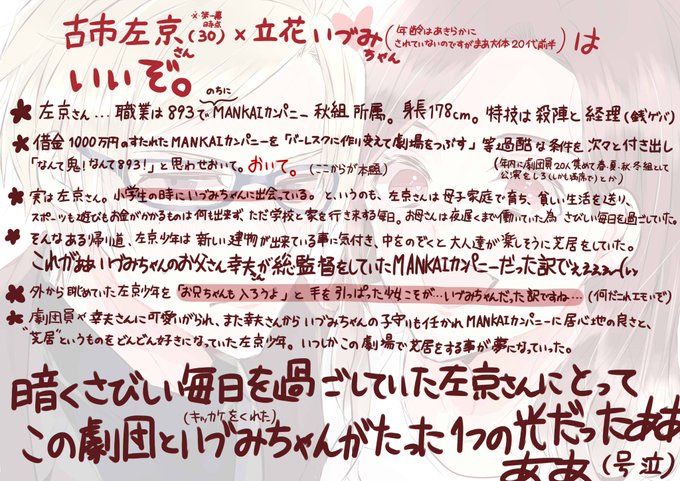 古市左京さん(30)※第一幕時点 × 立花いづみちゃん(年齢はあきらかにされていないのですがまあ大体20代前半)は
いいぞ。
左京さん…職業は893でのちにMANKAIカンパニー 秋組 所属。身長178cm。特技は殺陣と経理(銭ゲバ)
借金1000万円のすたれたMANKAIカンパニーを「バーレスクに作り変えて劇場をつぶす」等過酷な条件を次々と付き出し
「なんて鬼!なんて893!」と思わせおいて。おいて。(ここからが本題)(年内に劇団員20人集めて春・夏・秋・冬組として公演をしろ(しかも満席で)とか)
実は左京さん。小学生の時にいづみちゃんに出会っている。というのも、左京さんは母子家庭で育ち、貧しい生活を送り、
スポーツも遊びもお金がかかるものは何も出来ず ただ学校と家を行き来する毎日。お母さんは夜遅くまで働いていた為 さびしい毎日を過していた。
そんなある帰り道、左京少年は 新しい建物が出来ている事に気付き、中をのぞくと 大人達が楽しそうに芝居をしていた。
これがああ いづみちゃんのお父さん幸夫さんが総監督をしていたMANKAIカンパニーだった訳でえぇぇぇ~(い
外から眺めていた左京少年を「お兄ちゃんも入ろうよ」と 手を引っぱった少女こそが…いづみちゃんだった訳ですね…(何だこれエモいぞ)
劇団員や幸夫さんに可愛いがられ、また幸夫さんから いづみちゃんの子守りも任かれ MANKAIカンパニーに居心地の良さと、
"芝居"というものをどんどん好きになっていった左京少年。いつしかこの劇場で芝居をする事が夢になっていった。
暗くさびしい毎日を過ごしていた左京さんにとって
この劇団と(キッカケをくれた)いづみちゃんがたった1つの光だったああ
ああ(号泣)